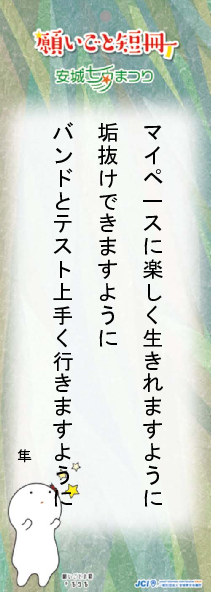 願いごと短冊
安城七夕まつり
マイペースに楽しく生きれますように
垢抜けできますように
バンドとテスト上手く行きますように
隼
JCI